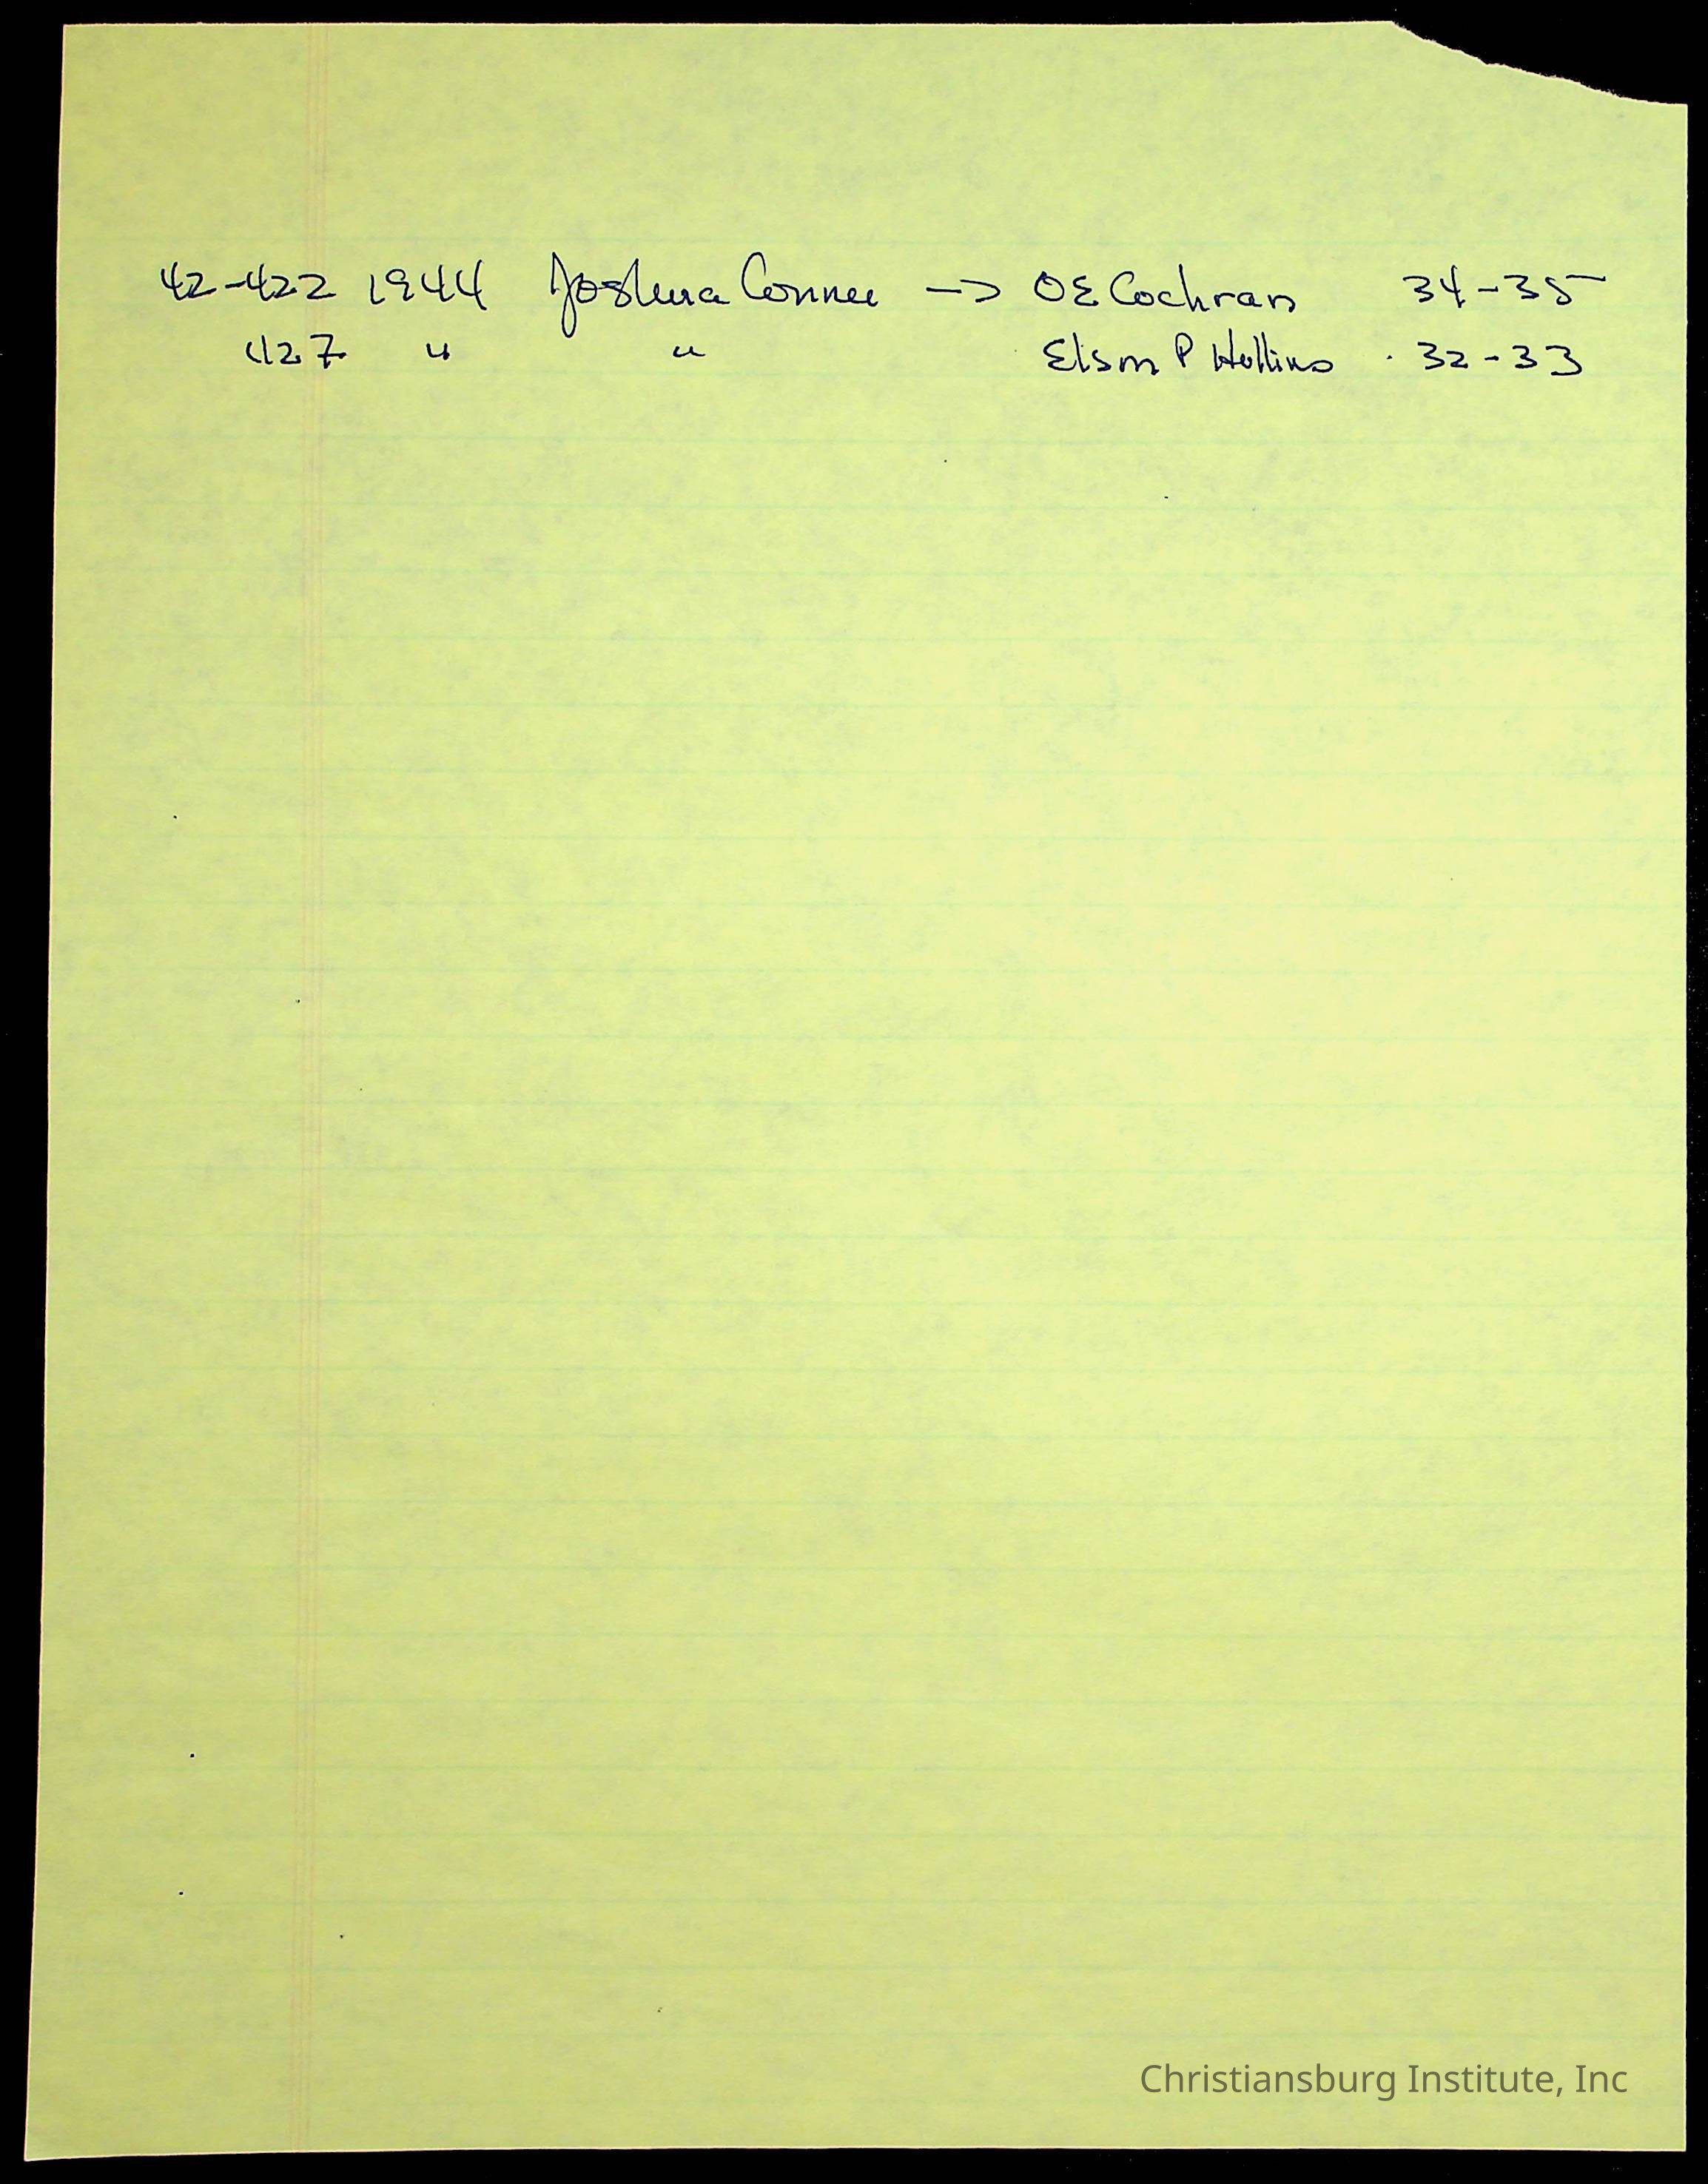 42-422 1944 Joshua Conner -> OE Cochran 34-35
427 " " P Hollins 32-33
Christiansburg Institute, Inc